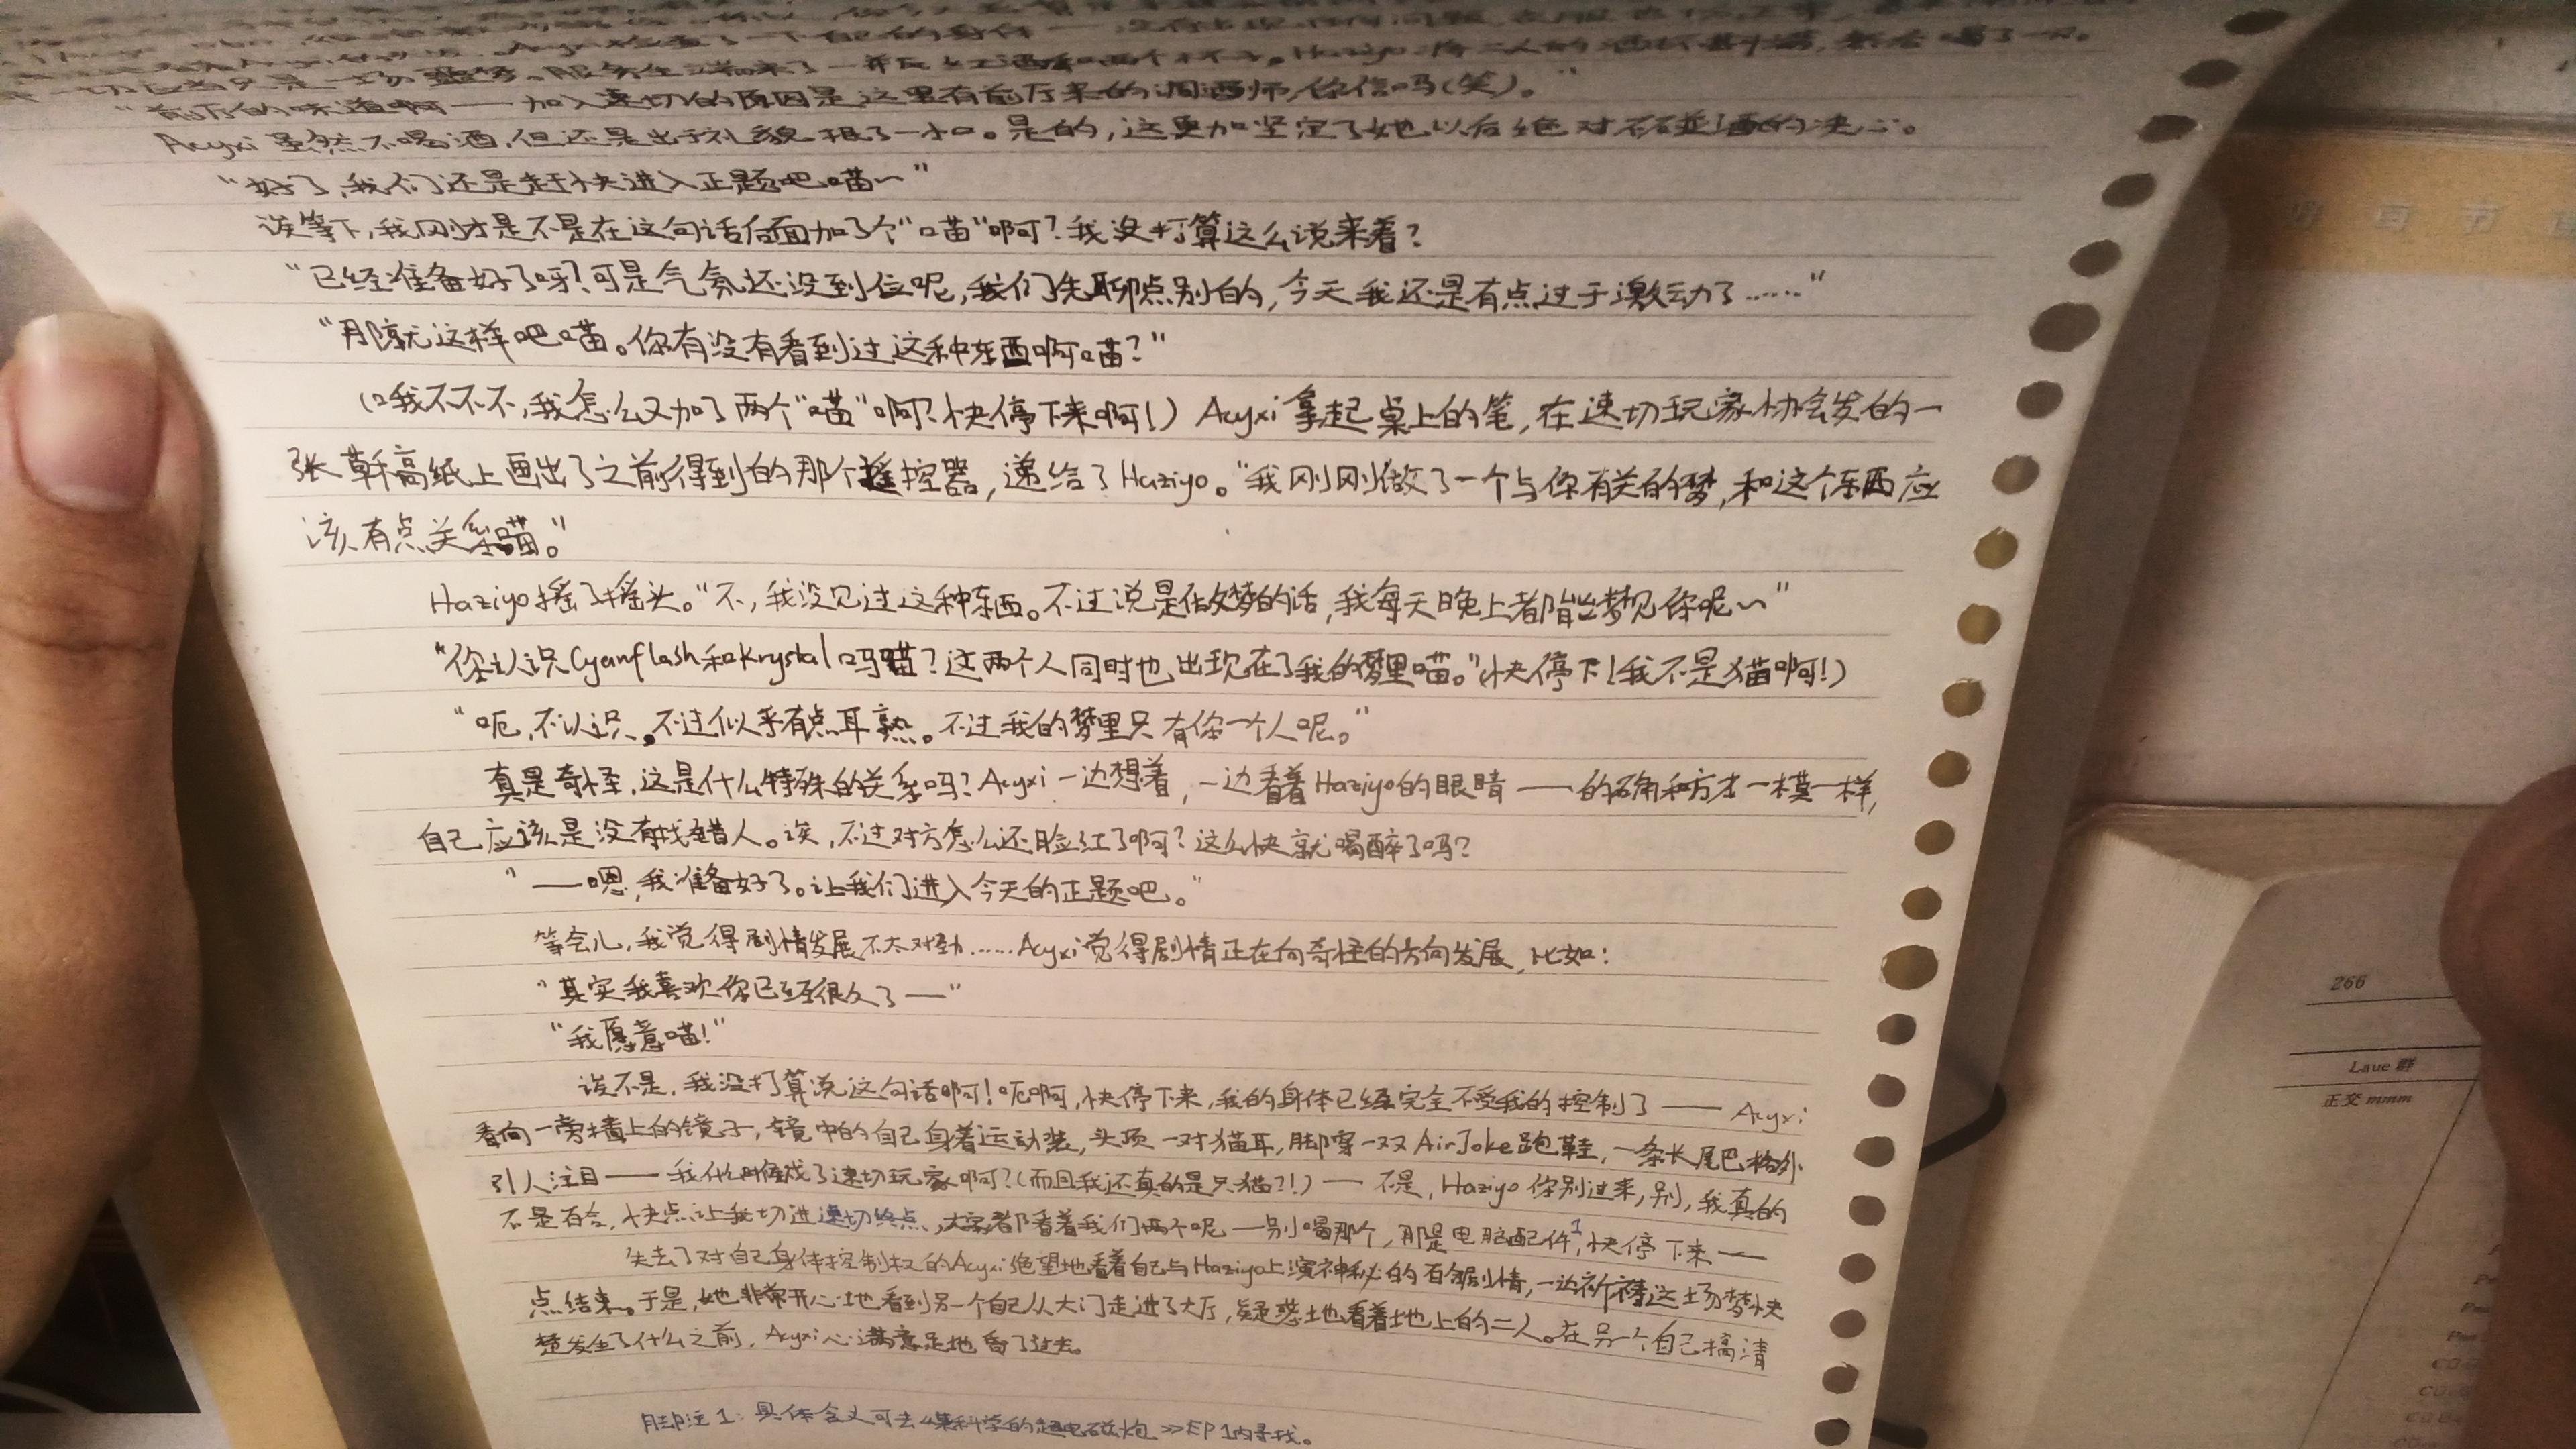 "前厅的味道啊——加入速切的原因是这里有前厅来的调酒师,你信吗(笑)。"
Acyxi虽然不喝酒,但还是出于礼貌抿了一小口。是的,这更加坚定了她以后绝对不碰酒的决心。
"好了,我们还是赶快进入正题吧喵~"
诶等下,我刚才是不是在这句话后面加了个"喵"啊?我没打算这么说来着?
"已经准备好了呀?可是气氛还没到位呢,我们先聊点别的,今天我还是有点过于激动了……"
"那就这样吧喵。你有没有看到过这种东西啊喵?"
(哦不不不,我怎么又加了两个"喵"啊?快停下来啊!)Acyxi拿起桌上的笔,在速切玩家协会发的一
张草稿纸上画出了之前得到的那个遥控器,递给了Haziyo。"我刚刚做了一个与你有关的梦,和这个东西应
该有点关系喵。"
Haziyo摇了摇头。"不,我没见过这种东西。不过说是做梦的话,我每天晚上都能梦见你呢~"
"你认识Cyanflash和Krystal吗喵?这两个人同时也出现在了我的梦里喵。"(快停下!我不是猫啊!)
"呃,不认识。不过似乎有点耳熟。不过我的梦里只有你一个人呢。"
真是奇怪,这是什么特殊的关系吗?Acyxi一边想着,一边看着Haziyo的眼睛——的确和方才一模一样,
自己应该是没有找错人。诶,不过对方怎么还脸红了啊?这么快就喝醉了吗?
"——嗯,我准备好了。让我们进入今天的正题吧。"
等会儿,我觉得剧情发展不太对劲……Acyxi觉得剧情正在向奇怪的方向发展,比如:
"其实我喜欢你已经很久了——"
"我愿意喵!"
诶不是,我没打算说这句话啊!呃啊,快停下来,我的身体已经完全不受我的控制了——Acyxi
看向一旁墙上的镜子,镜中的自己身着运动装,头顶一对猫耳,脚穿一双AirJoke跑鞋,一条长尾巴格外
引人注目——我什么时候成了速切玩家啊?(而且我还真的是只猫?!)——不是,Haziyo你别过来,别,我真的
不是百合,快点让我切进速切终点,大家都看着我们两个呢——别喝那个,那是电脑配件¹,快停下来——
失去了对自己身体控制权的Acyxi绝望地看着自己与Haziyo上演神秘的百合剧情,一边祈祷这场梦快
点结束。于是,她非常开心地看到另一个自己从大门走进了大厅,疑惑地看着地上的二人。在另一个自己搞清
楚发生了什么之前,Acyxi心满意足地昏了过去。
脚注1:具体含义可去《某科学的超电磁炮》EP1内寻找。
266
Laue 群
正交 mmm